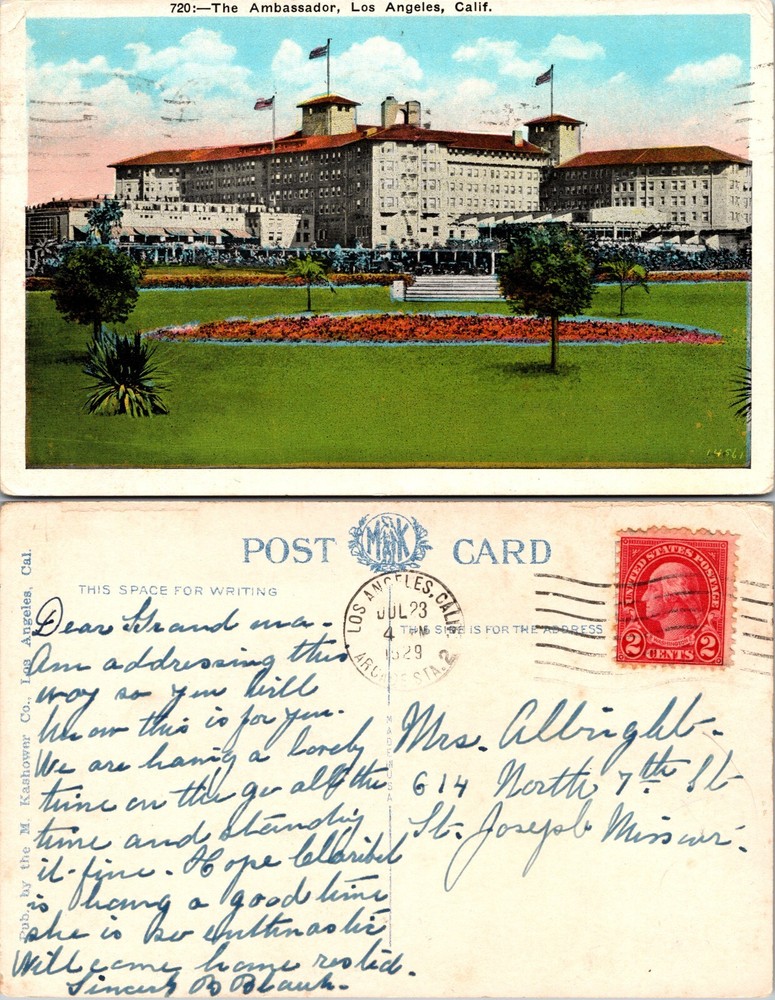 720:—The Ambassador, Los Angeles, Calif.
14561
POST CARD
MKK
THIS SPACE FOR WRITING
THIS SIDE IS FOR THE ADDRESS
Pub. by the M. Kashower Co., Los Angeles, Cal.
MADE IN USA
LOS ANGELES, CALIF.
JUL 23
4 PM
1929
ARCADE STA. 2
UNITED STATES POSTAGE
2 CENTS 2
Dear Grand ma-
Am addressing this
way so you will
know this is for you.
We are having a lovely
time on the go all the
time and standing
it fine. Hope Claribel
is having a good time
she is so enthusastic
Will come home rested.
Mrs. Albright.
614 North 7th St
St. Joseph Missouri.